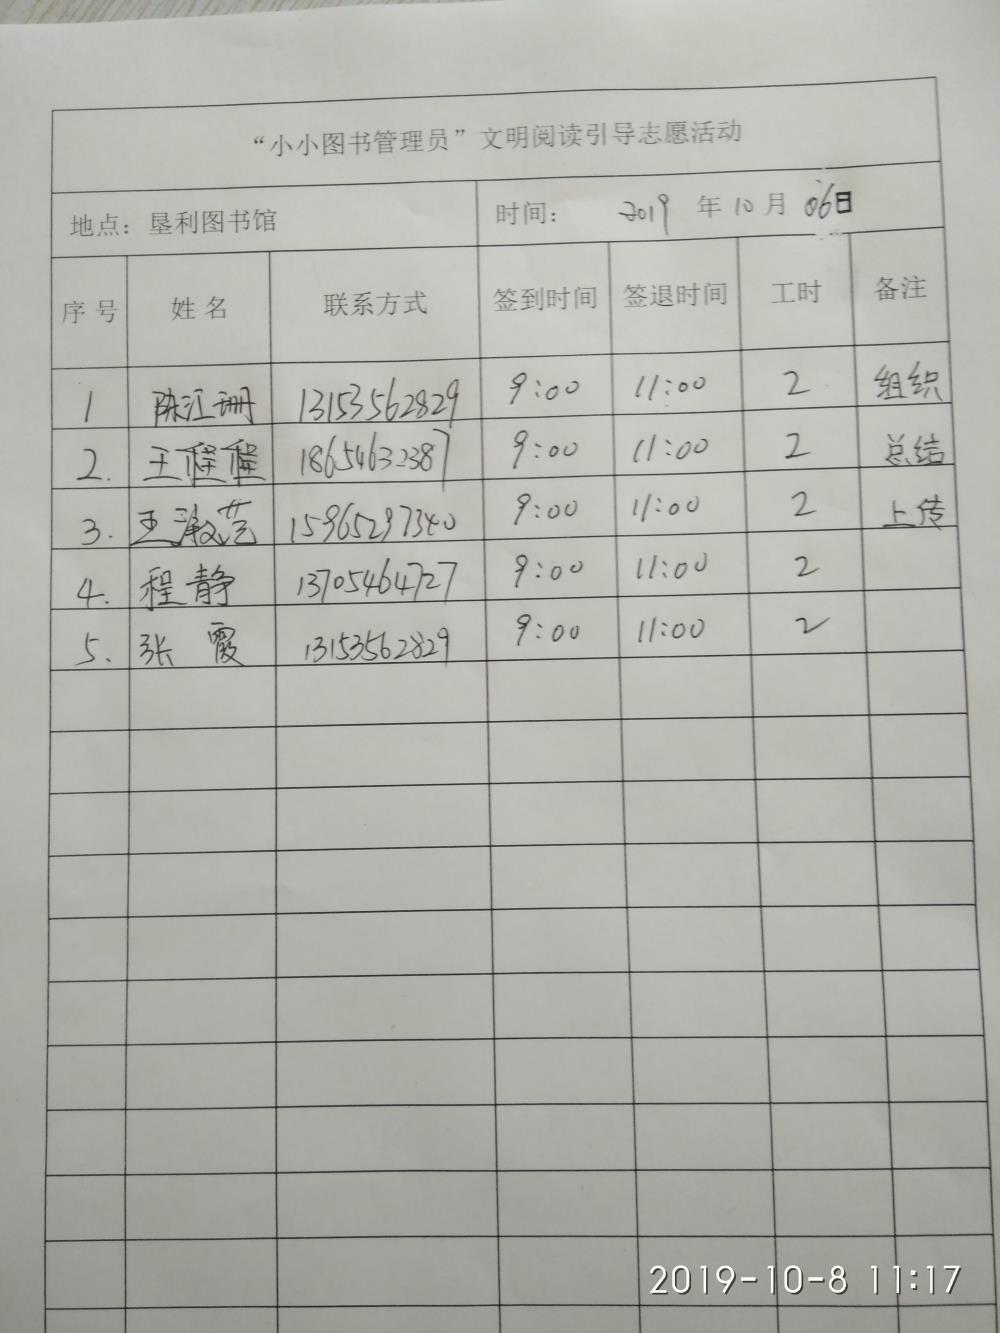 “小小图书管理员”文明阅读引导志愿活动
地点：垦利图书馆 时间： 2019 年 10 月 06日
序号 姓名 联系方式 签到时间 签退时间 工时 备注
1 陈江珊 13153562829 9:00 11:00 2 组织
2. 王程程 18654632387 9:00 11:00 2 总结
3. 王淑艺 15965297340 9:00 11:00 2 上传
4. 程静 13705464727 9:00 11:00 2
5. 张霞 13153562829 9:00 11:00 2
2019-10-8 11:17